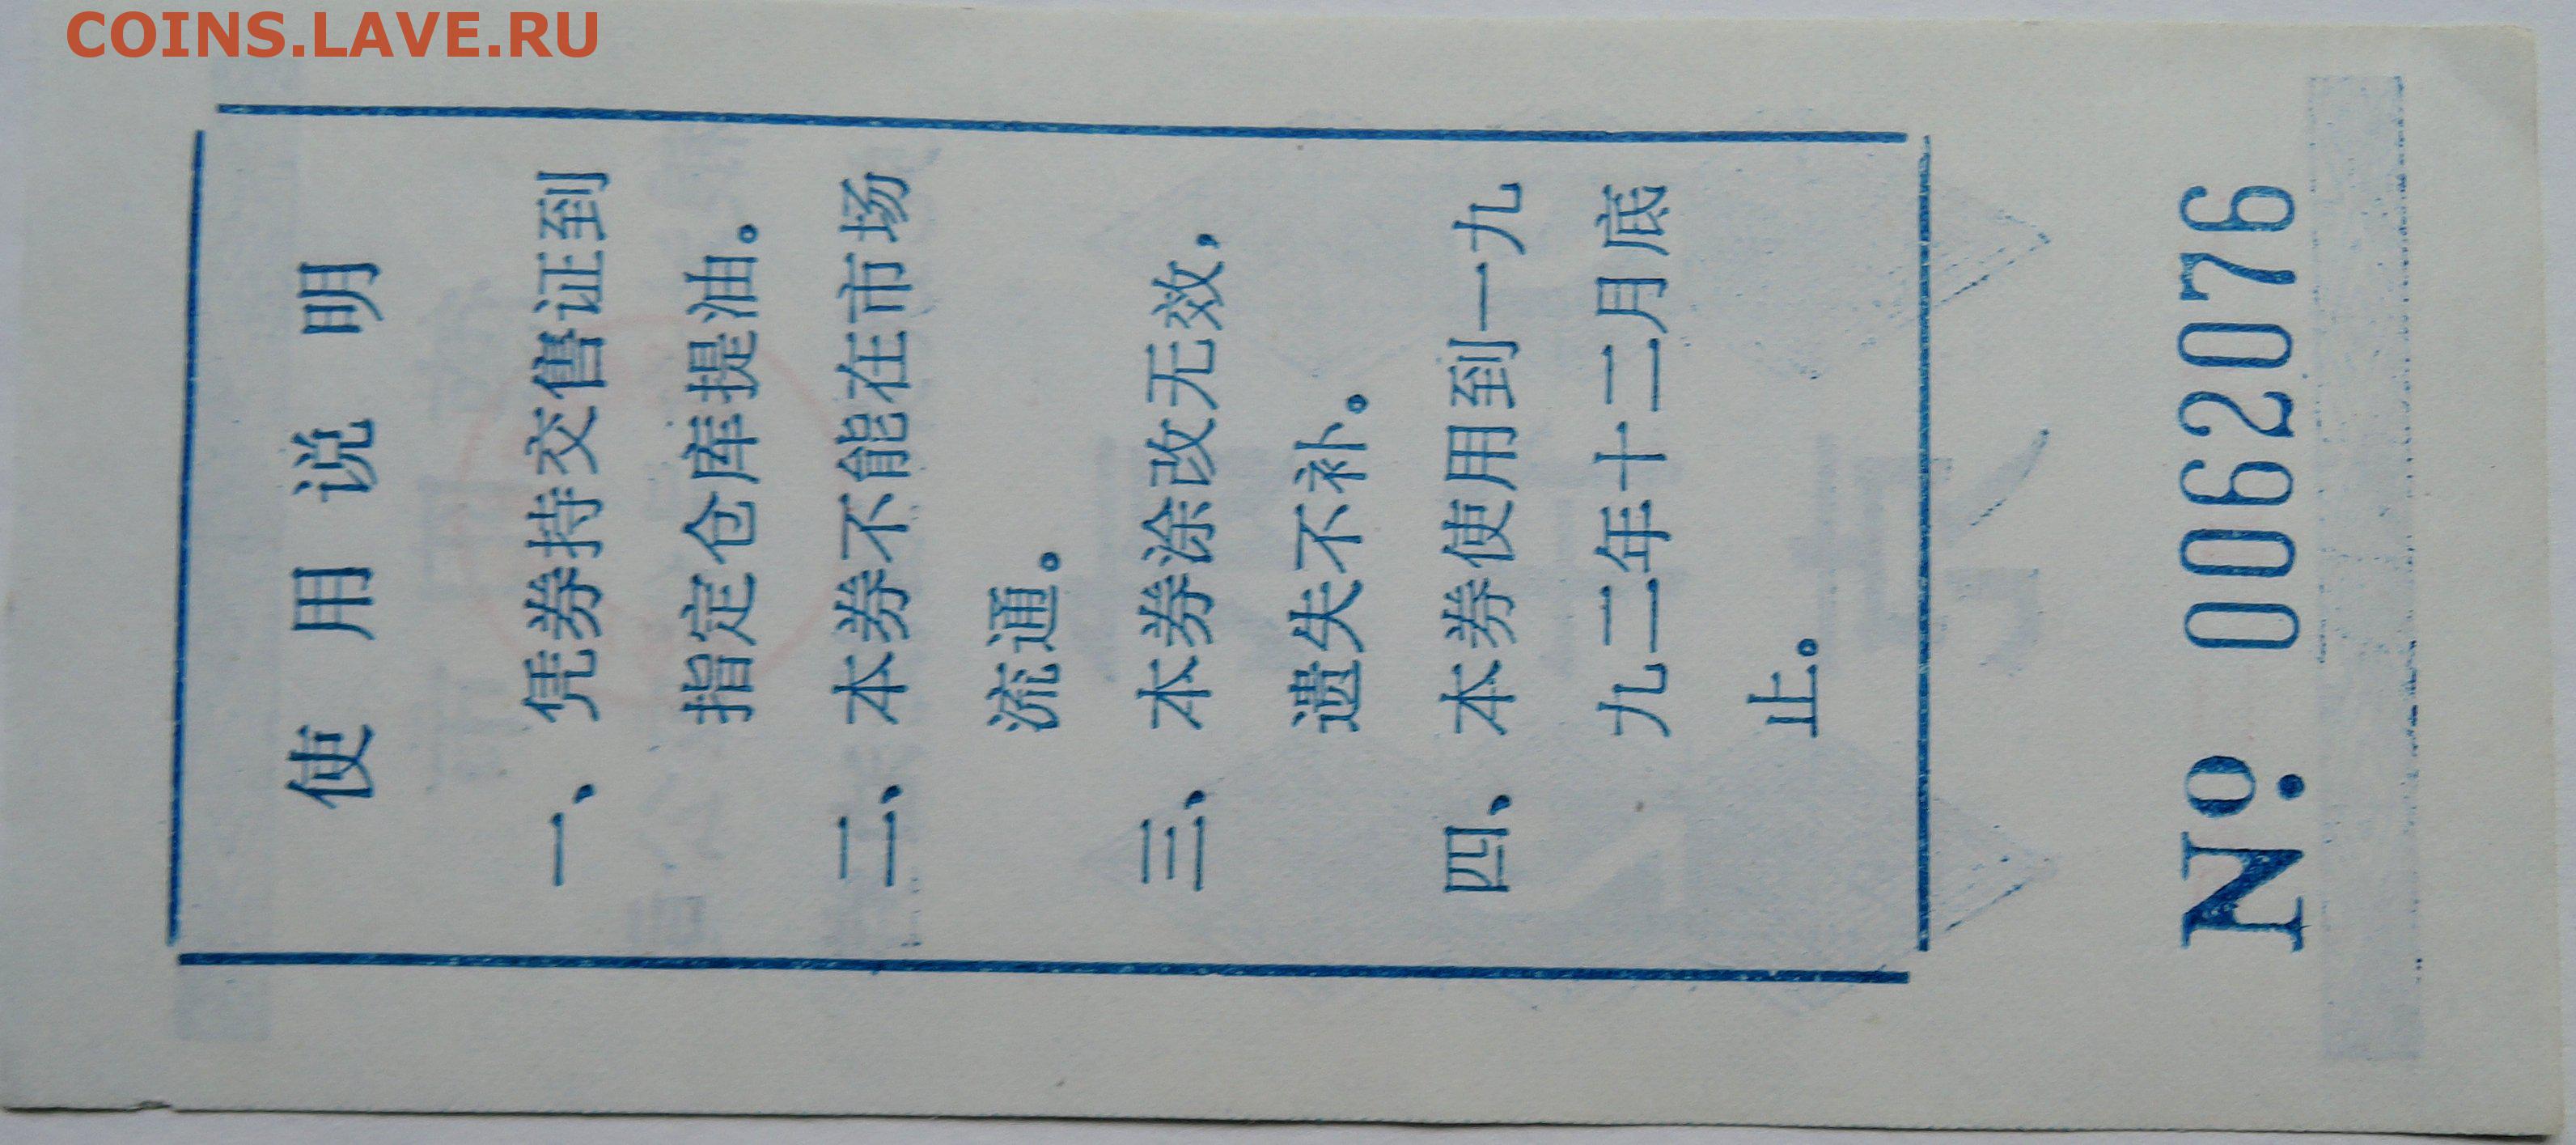 COINS.LAVE.RU
使用说明
一、凭券持交售证到
指定仓库提油。
二、本券不能在市场
流通。
三、本券涂改无效，
遗失不补。
四、本券使用到一九
九二年十二月底
止。
Nº 0062076